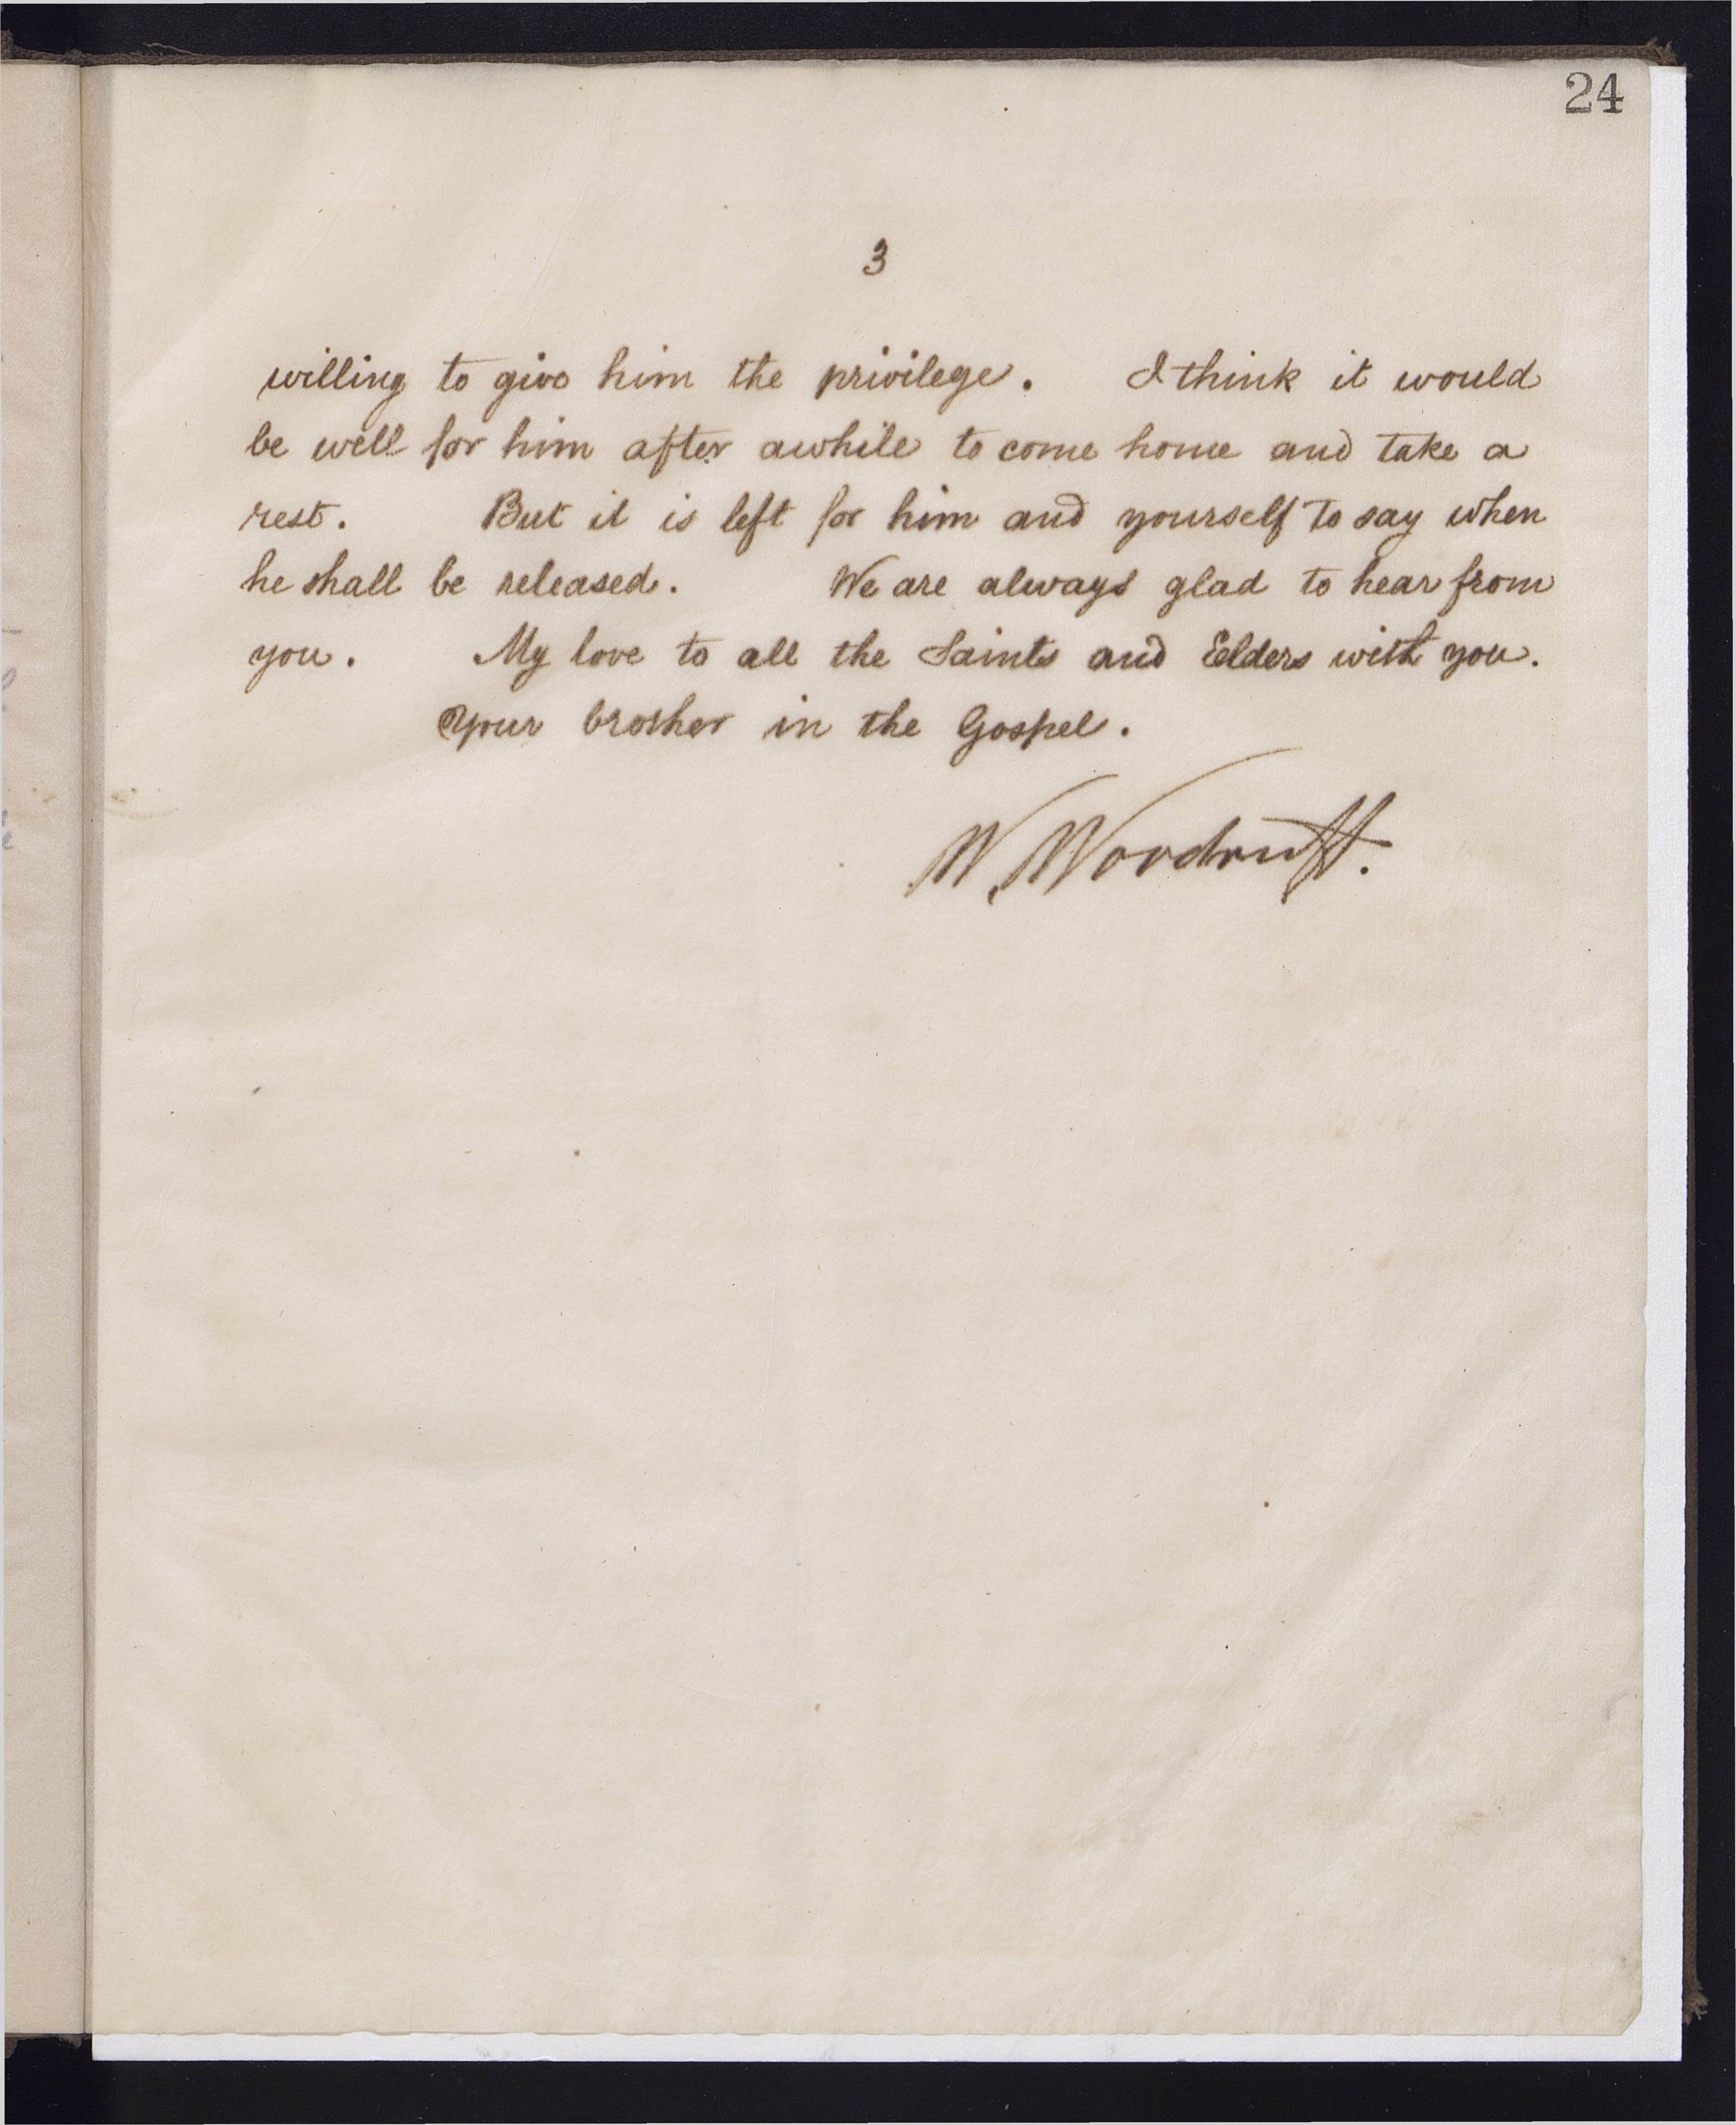 24
3
willing to give him the privilege. I think it would
be well for him after awhile to come home and take a
rest. But it is left for him and yourself to say when
he shall be released. We are always glad to hear from
you. My love to all the Saints and Elders with you.
Your brother in the Gospel.
W. Woodruff.